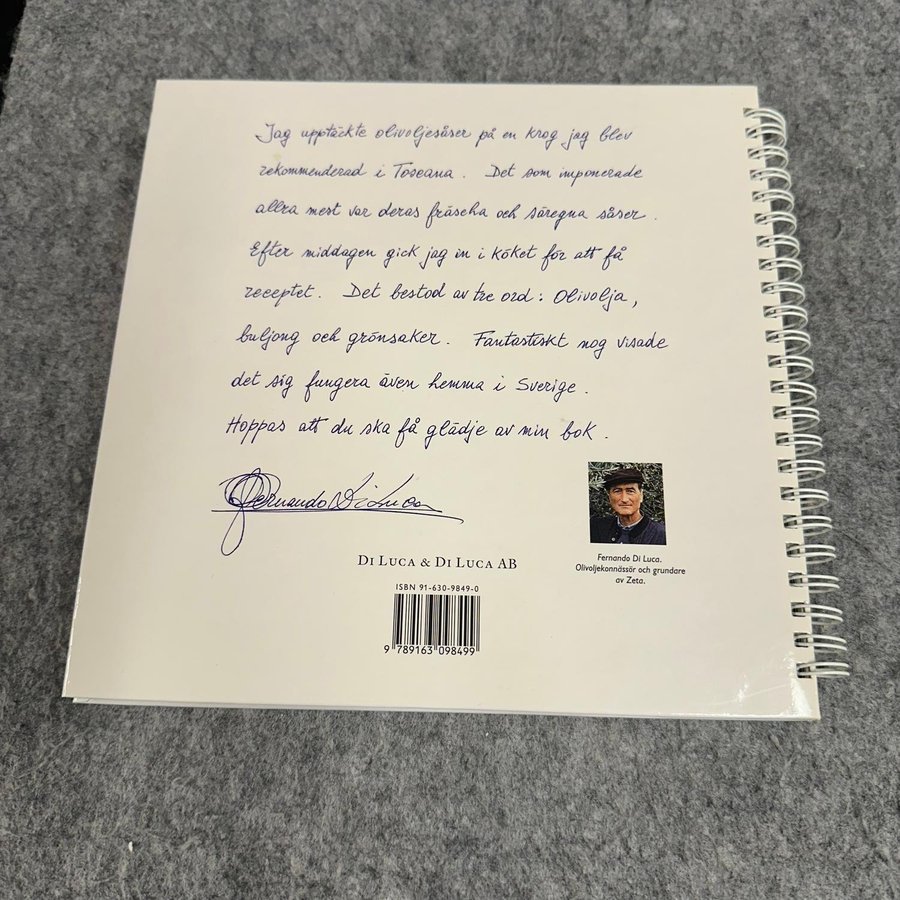 Jag upptäckte olivoljesåser på en krog jag blev
rekommenderad i Toscana. Det som imponerade
allra mest var deras fräscha och säregna såser.
Efter middagen gick jag in i köket för att få
receptet. Det bestod av tre ord: Olivolja,
buljong och grönsaker. Fantastiskt nog visade
det sig fungera även hemma i Sverige.
Hoppas att du ska få glädje av min bok.
Fernando Di Luca
Fernando Di Luca.
Olivoljekonnässör och grundare
av Zeta.
Di Luca & Di Luca AB
ISBN 91-630-9849-0
9 789163 098499